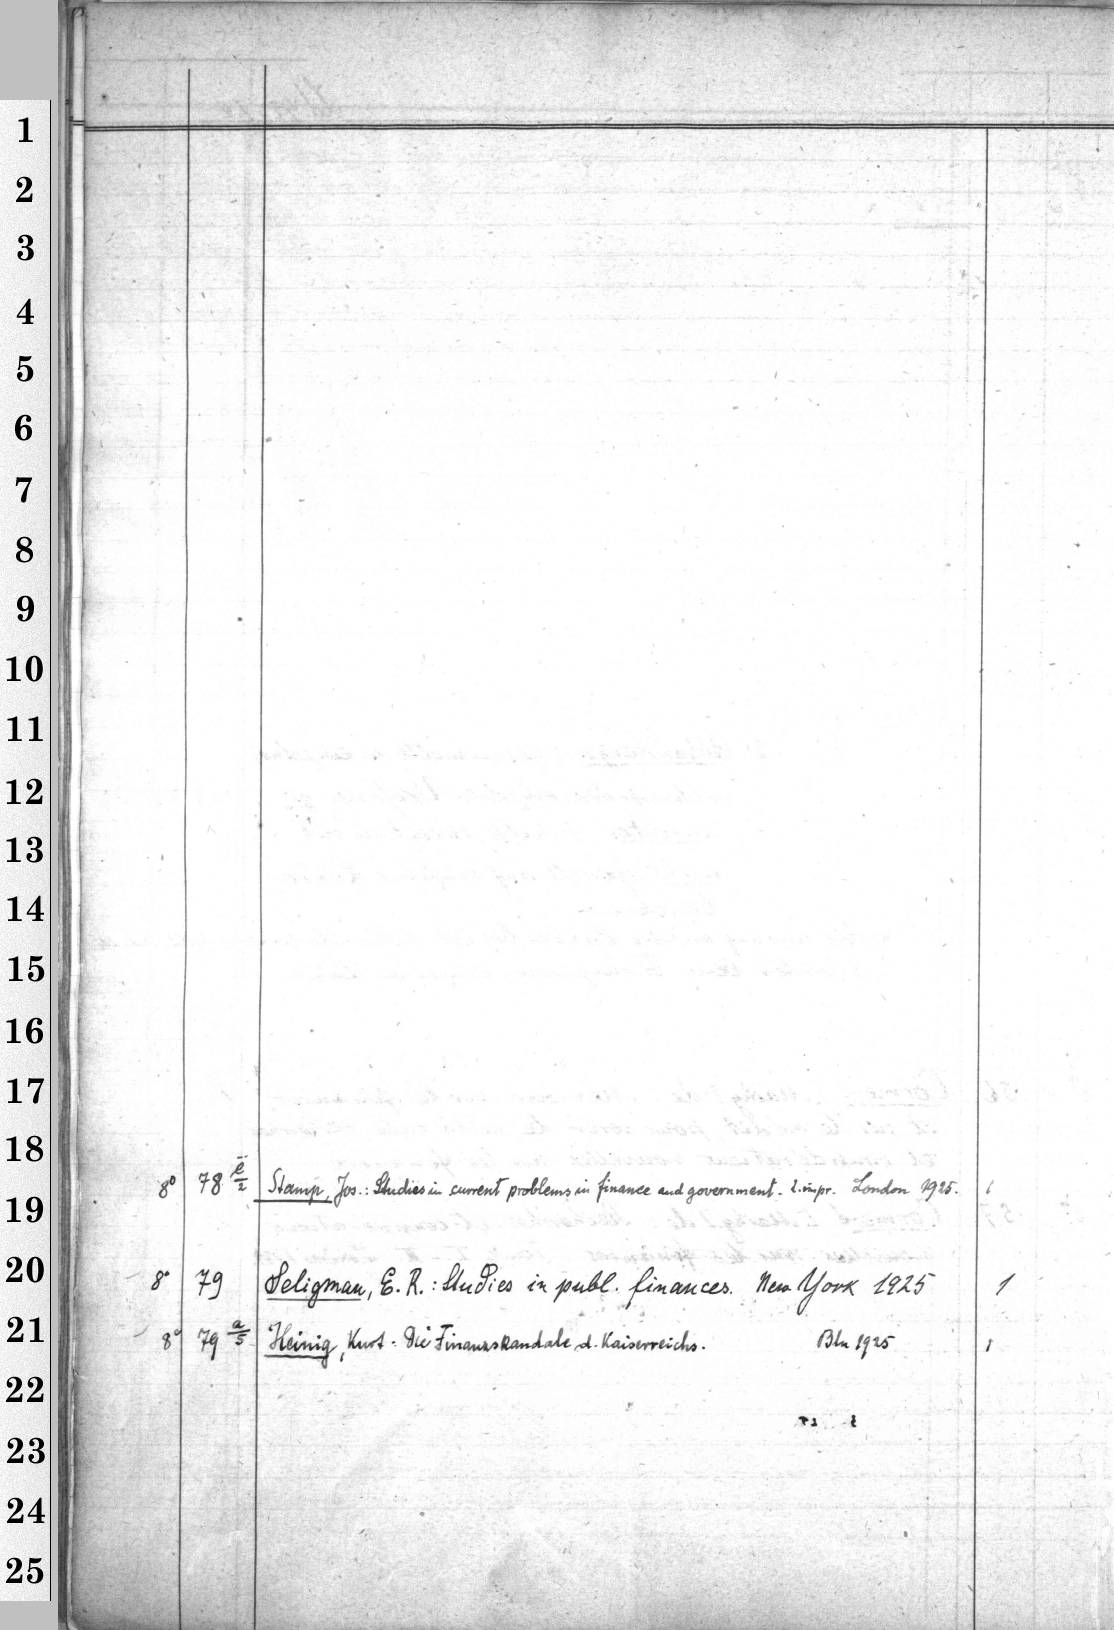 1
2
3
4
5
6
7
8
9
10
11
12
13
14
15
16
17
18
8° 78 e/2 Stamp, Jos.: Studies in current problems in finance and government. 2. impr. London 1925. 1
19
20
8° 79 Seligman, E. R.: Studies in publ. finances. New York 1925 1
21
8° 79 a/5 Heinig, Kurt: Die Finanzskandale d. Kaiserreichs. Bln 1925 1
22
23
24
25